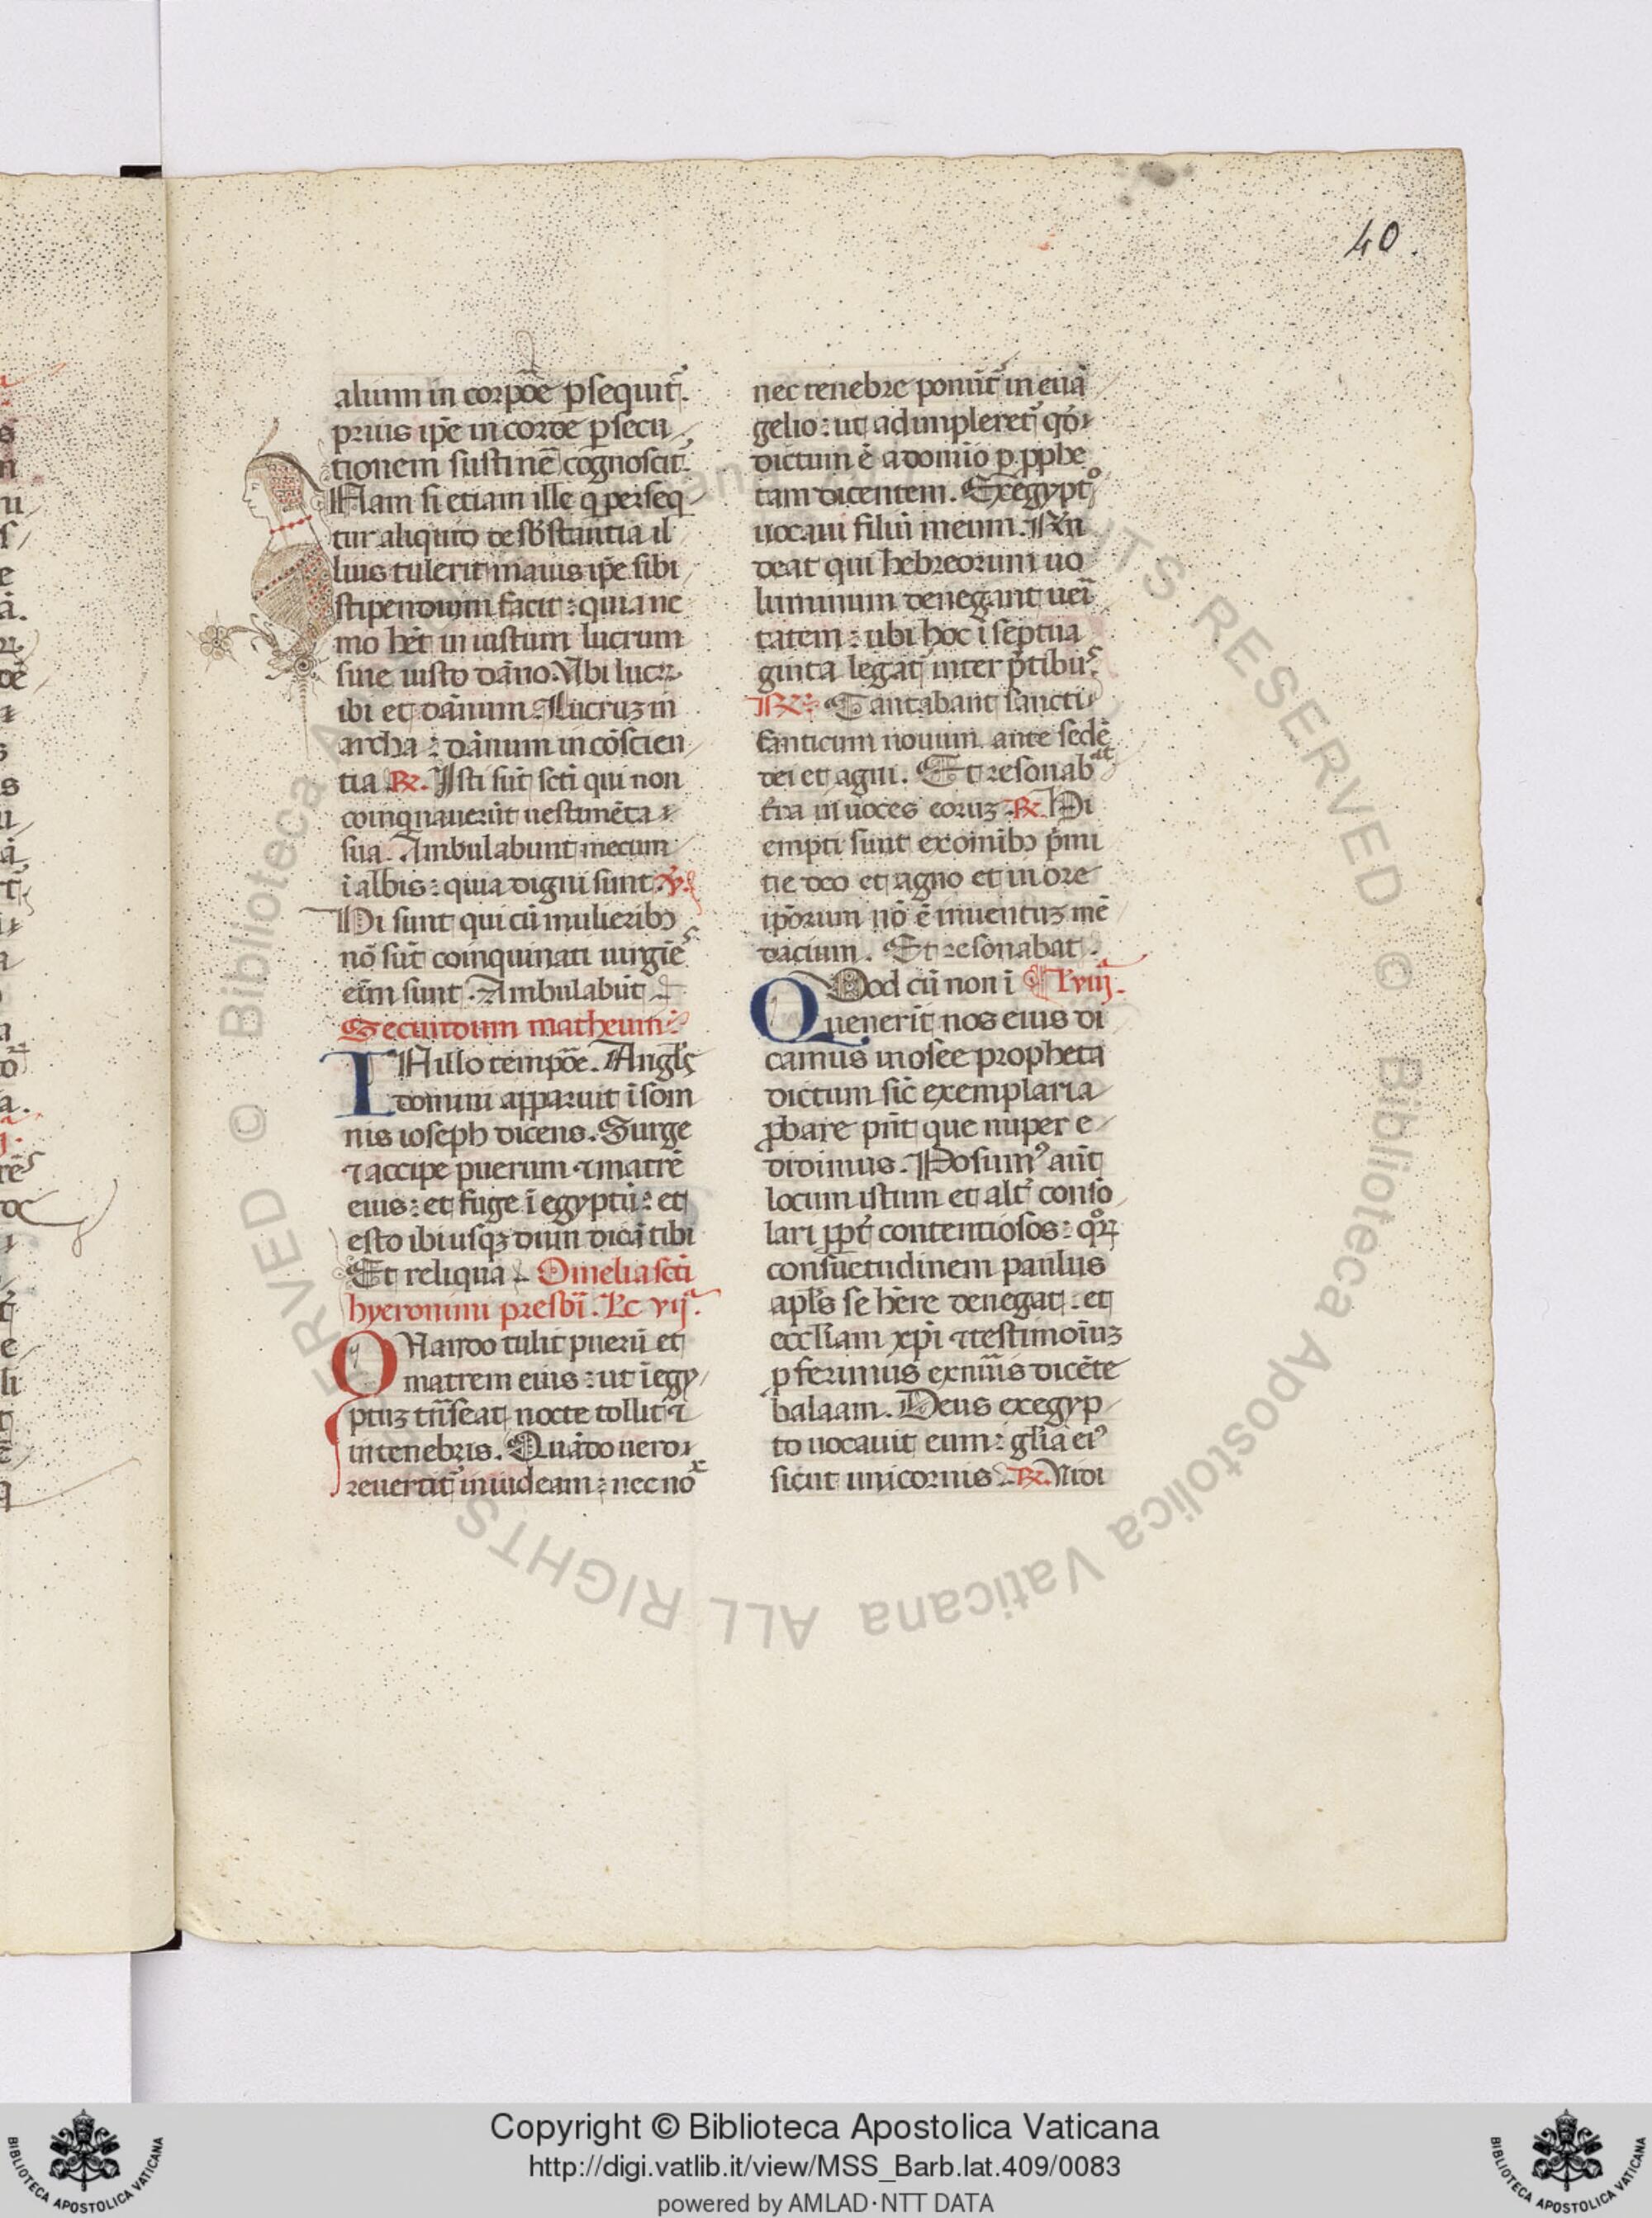 40.
alium in corpōe psequit᷑.
prius ip̄e in corde psecu
tionem sustinē cognoscit᷑.
Nam si etiam ille q perseq
tur aliquid de sb̄stantia il
lius tulerit maius ip̄e sibi
stipendium facit: quia ne
mo hēt iniustum lucrum
sine iusto dāno. Vbi lucꝝ
ibi et dānum. Lucruz in
archa: dānum in cōscien
tia ℞. Isti sūt scī qui non
coinquauerūt uestimēta
sua. Ambulabunt mecum
ī albis: quia digni sunt. ℣.
Hi sunt qui cū mulieribꝫ
nō sūt coinquinati uirgiēˢ
eīm sunt. Ambulabūt
Secundum matheum:
IN illo tempōe. Angl̄s
domini apparuit ī som
nis ioseph dicens. Surge
⁊ accipe puerum ⁊ matrē
eius: et fuge ī egyptū: et
esto ibi usqꝫ dum dicā tibi
Et reliqua. Omelia scī
hyeronimi presb̄i. Lc̄ vijᵃ.
QVando tulit puerū et
matrem eius: ut ī egy
ptuz trn̄seat nocte tollit ⁊
in tenebris. Quādo uero
reuertit᷑ in iudeam: nec nox
nec tenebre ponūt᷑ in euā
gelio: ut adimpleret᷑ qđ
dictum ē a domīo p ꝓphe
tam dicentem. Ex egypto
uocaui filiū meum. Rn̄
deat qui hebreorum uo
luminum denegant ueī
tatem: ubi hoc ī septua
ginta legat᷑ inter p̄tibuˢ
℞. Cantabant sancti
canticum nouum ante sedē
dei et agni. Et resonabat
tr̄a in uoces eoruz ℞. Hi
empti sunt ex oīnibꝫ p̄mi
tie deo et agno et in ore
ip̄orum nō ē inuentuz mē
dacium. Et resonabat.
QVod cū non ī Lc̄ viijᵃ.
uenerīt nos eius di
camus mosee propheta
dictum sic̄ exemplaria
ꝓbare pn̄t que nuper e
didimus. Posumꝰ aūt
locum istum et alt᷑ consō
lari ꝓpt᷑ contentiosos: qͦꝝ
consuetudinem paulus
apl̄s se hēre denegat. et
eccl̄iam xp̄i ⁊ testimoīuz
pferimus ex nuīis dicēte
balaam. Deus ex egyp
to uocauit eum: gl̄ia eiꝰ
sicut unicornis. ℞. Vidi
Copyright © Biblioteca Apostolica Vaticana
http://digi.vatlib.it/view/MSS_Barb.lat.409/0083
powered by AMLAD·NTT DATA
BIBLIOTECA APOSTOLICA VATICANA
BIBLIOTECA APOSTOLICA VATICANA